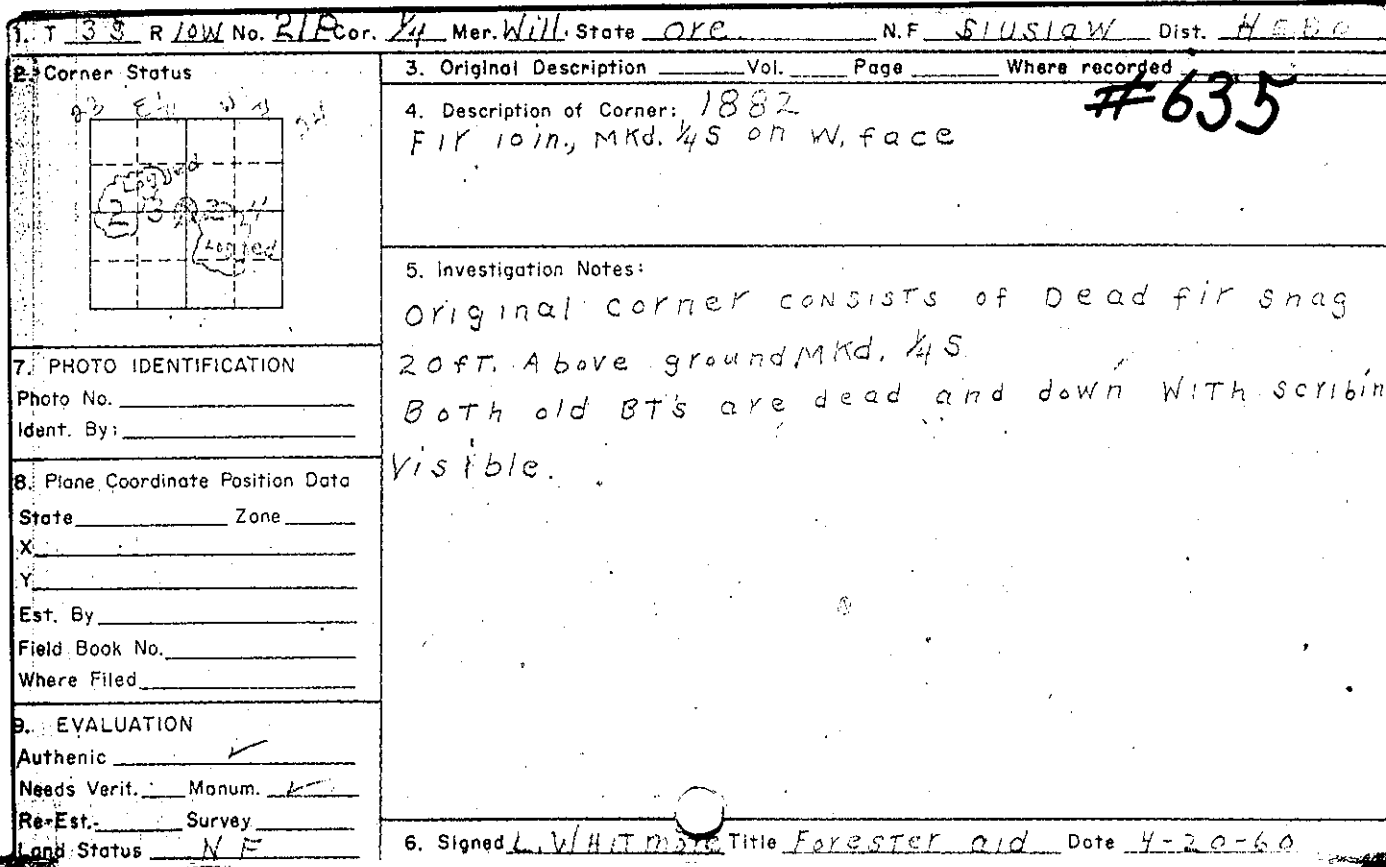 1. T 3S R 10W No. 21P Cor. 1/4 Mer. Will. State Ore N.F. Siuslaw Dist. HEBO
2. Corner Status
23 E 1/4 24
Logged
23 24
Logged
3. Original Description Vol. Page Where recorded
#635
4. Description of Corner: 1882
Fir 10in., MKd. 1/4 S on W. face
5. Investigation Notes:
Original corner consists of Dead fir snag
20 fT. Above ground MKd. 1/4 S
BoTh old BT's are dead and down WiTh scribin
Visible.
7. PHOTO IDENTIFICATION
Photo No.
Ident. By:
8. Plane Coordinate Position Data
State Zone
X
Y
Est. By
Field Book No.
Where Filed
9. EVALUATION
Authenic ✓
Needs Verit. Monum. ✓
Re-Est. Survey
Land Status NF
6. Signed L. WHITmore Title ForesTer aid Date 4-20-60